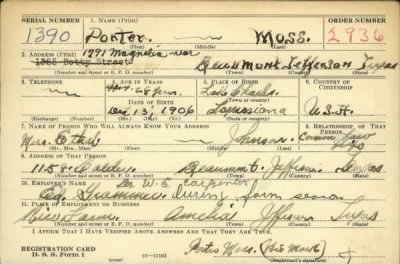 SERIAL NUMBER 1. NAME (Print) ORDER NUMBER
1390 Porter. Moss. 2936
(First) (Middle) (Last)
1791 Magnolia
2. ADDRESS (Print)
1355 Botty Street Beaumont Jefferson Texas
(Number and street or R. F. D. number) (Town) (County) (State)
3. TELEPHONE 4. AGE IN YEARS 5. PLACE OF BIRTH 6. COUNTRY OF CITIZENSHIP
Lake Charles
(Town or county)
DATE OF BIRTH
Dec 13, 1906 Louisiana U.S.A.
(Exchange) (Number) (Mo.) (Day) (Yr.) (State or country)
7. NAME OF PERSON WHO WILL ALWAYS KNOW YOUR ADDRESS 8. RELATIONSHIP OF THAT PERSON
Mrs. Ethel Johnson Common Law
(Mr., Mrs., Miss) (First) (Middle) (Last)
9. ADDRESS OF THAT PERSON
1158 Beaumont Jefferson Texas
(Number and street or R. F. D. number) (Town) (County) (State)
10. EMPLOYER'S NAME
W. E. Carpenter
during farm season
11. PLACE OF EMPLOYMENT OR BUSINESS
Rice Farm Amelia Jefferson Texas
(Number and street or R. F. D. number) (Town) (County) (State)
I AFFIRM THAT I HAVE VERIFIED ABOVE ANSWERS AND THAT THEY ARE TRUE.
REGISTRATION CARD
D. S. S. Form 1 16—17105 Porter Moss (His Mark) X